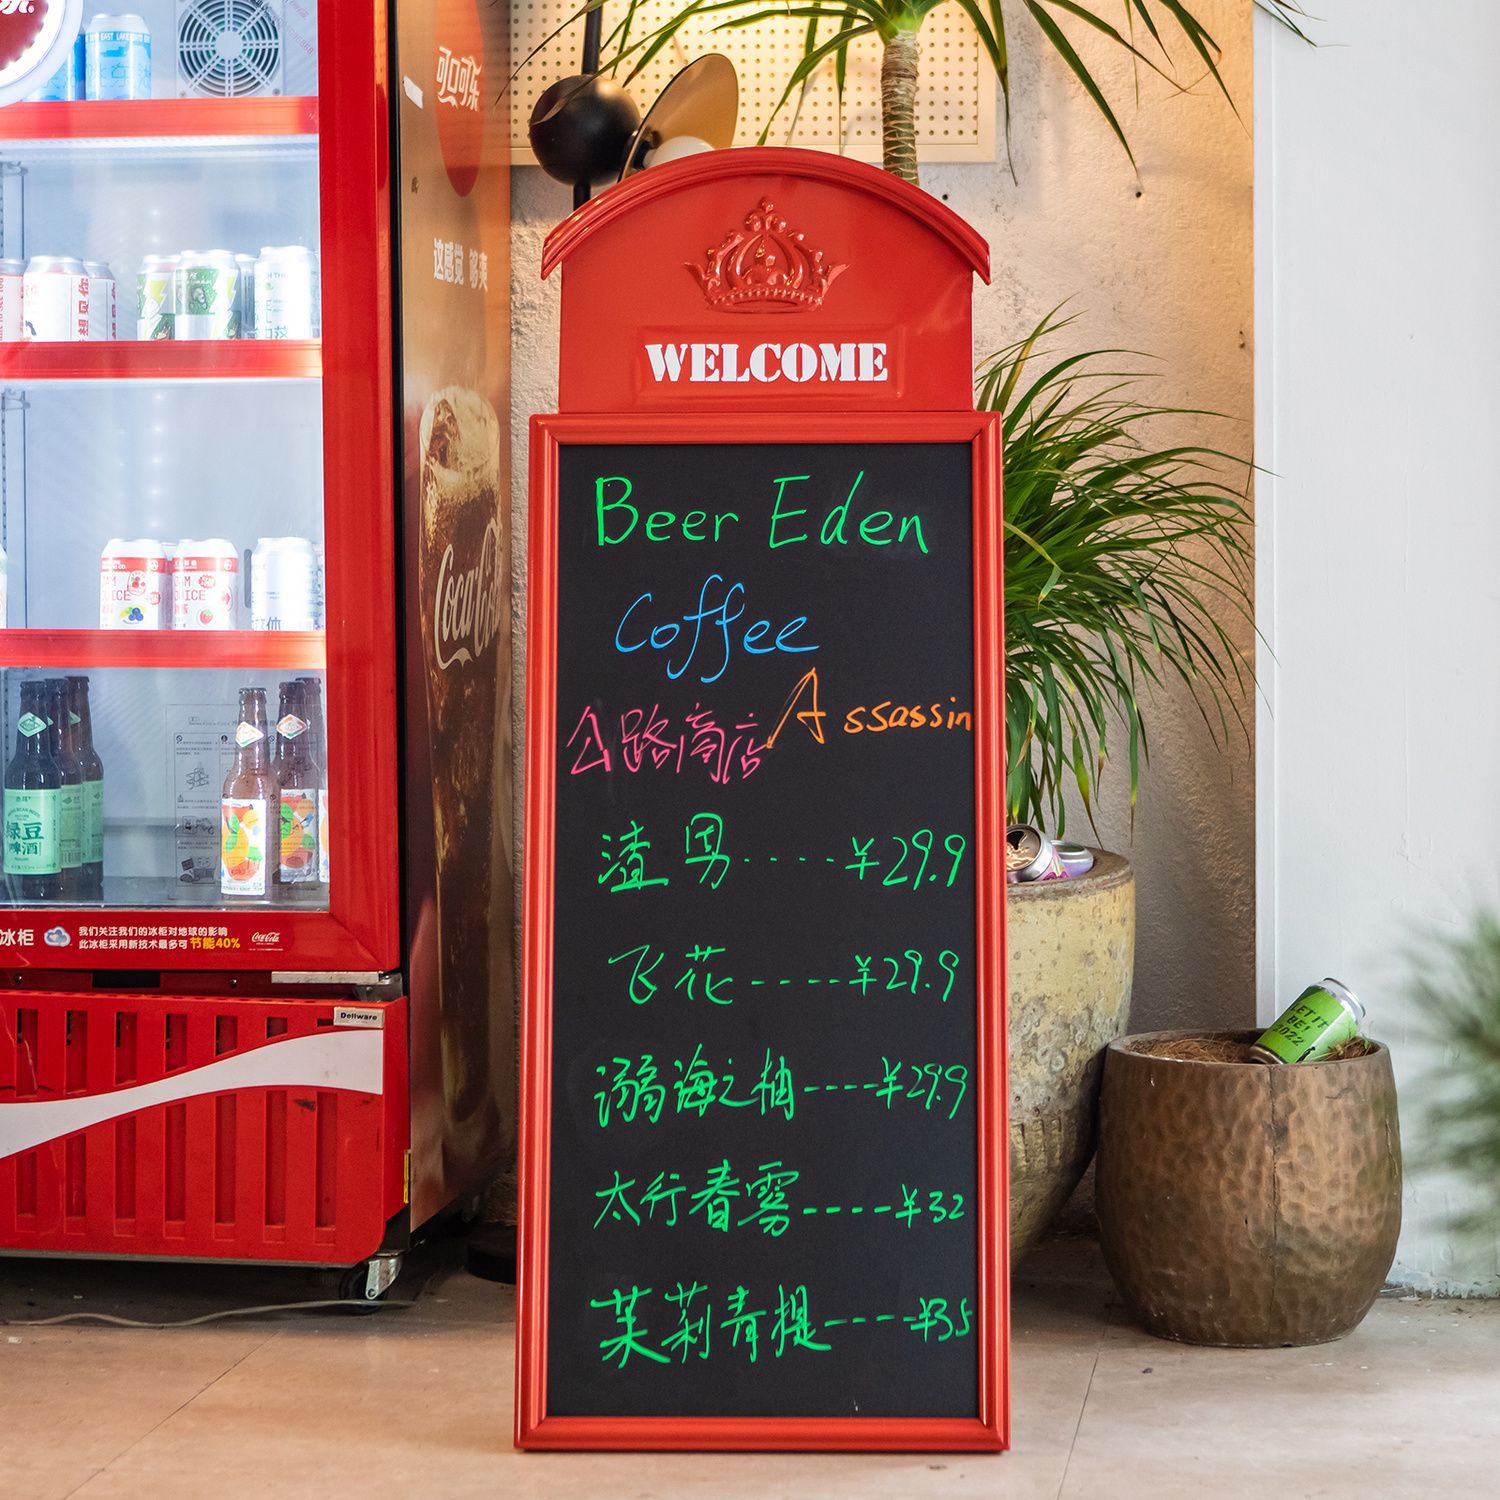 WELCOME
Beer Eden
Coffee
公路商店 Assassin
渣男-----¥29.9
飞花-----¥29.9
溺海之柚----¥29.9
太行春雾----¥32
茉莉青提----¥35
可口可乐
这感觉 够爽
Coca-Cola
EAST LAKE
绿豆
啤酒
冰柜
我们关注我们的冰柜对地球的影响
此冰柜采用新技术最多可 节能40%
Coca-Cola
Dellware
LET IT
BE!
2022